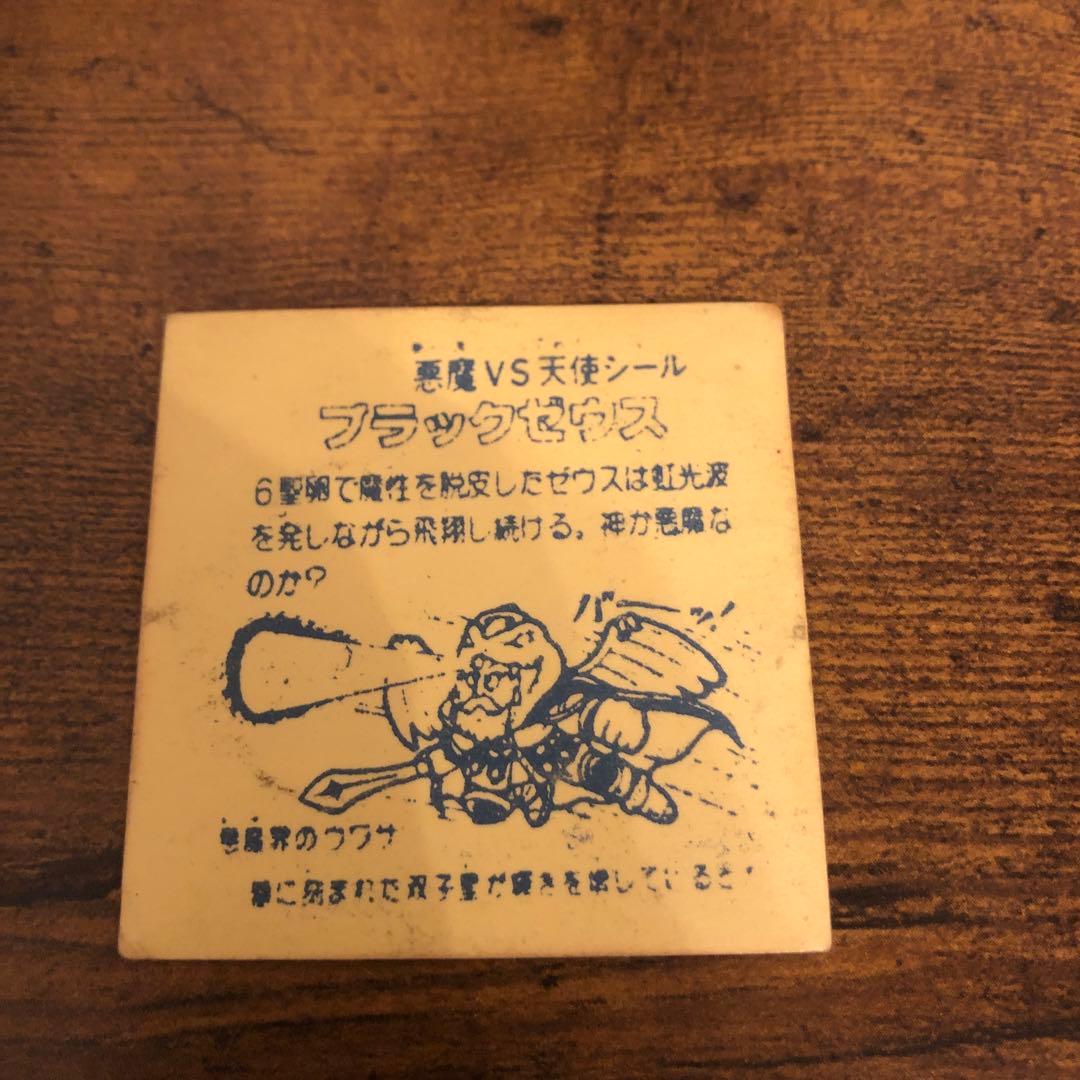 悪魔VS天使シール
ブラックゼウス
6聖卵で魔性を脱皮したゼウスは虹光波
を発しながら飛翔し続ける。神か悪魔な
のか?
バーッ!
悪魔界のウワサ
に刻まれた双子聖が輝きを増しているさ